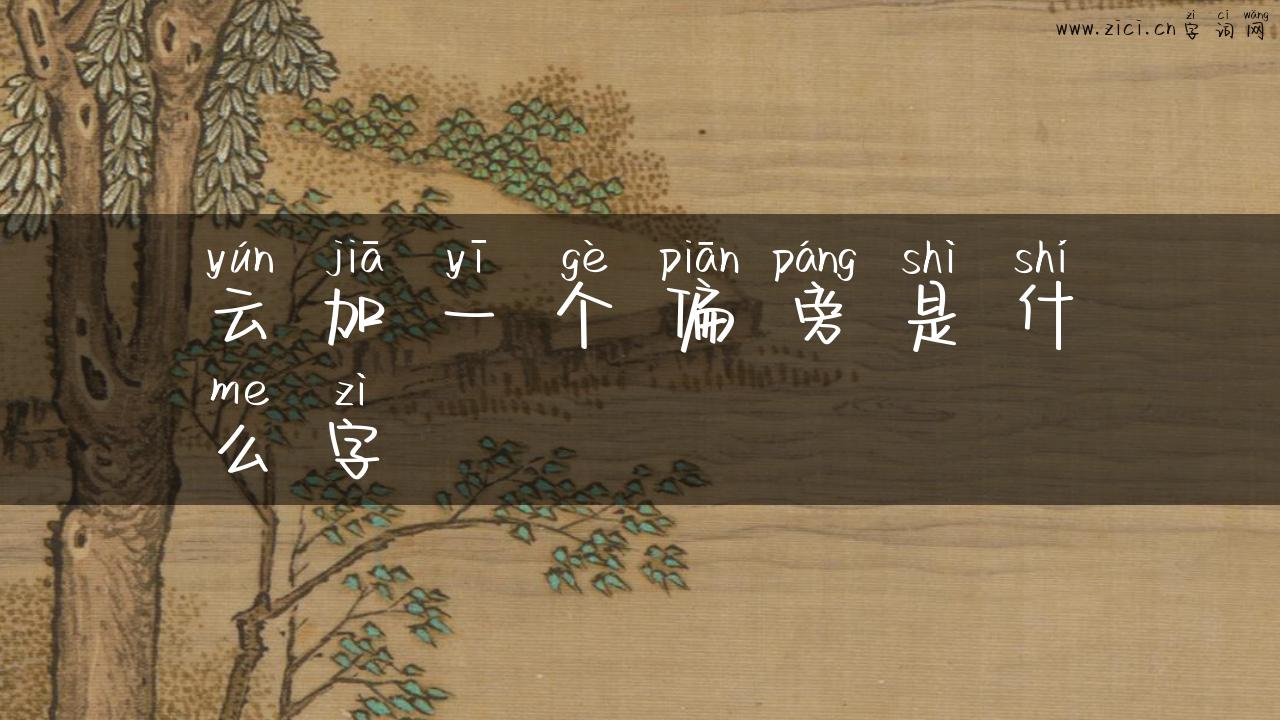 zì cí wǎng
www.zici.cn 字词网
yún jiā yī gè piān páng shì shí
云加一个偏旁是什
me zì
么字